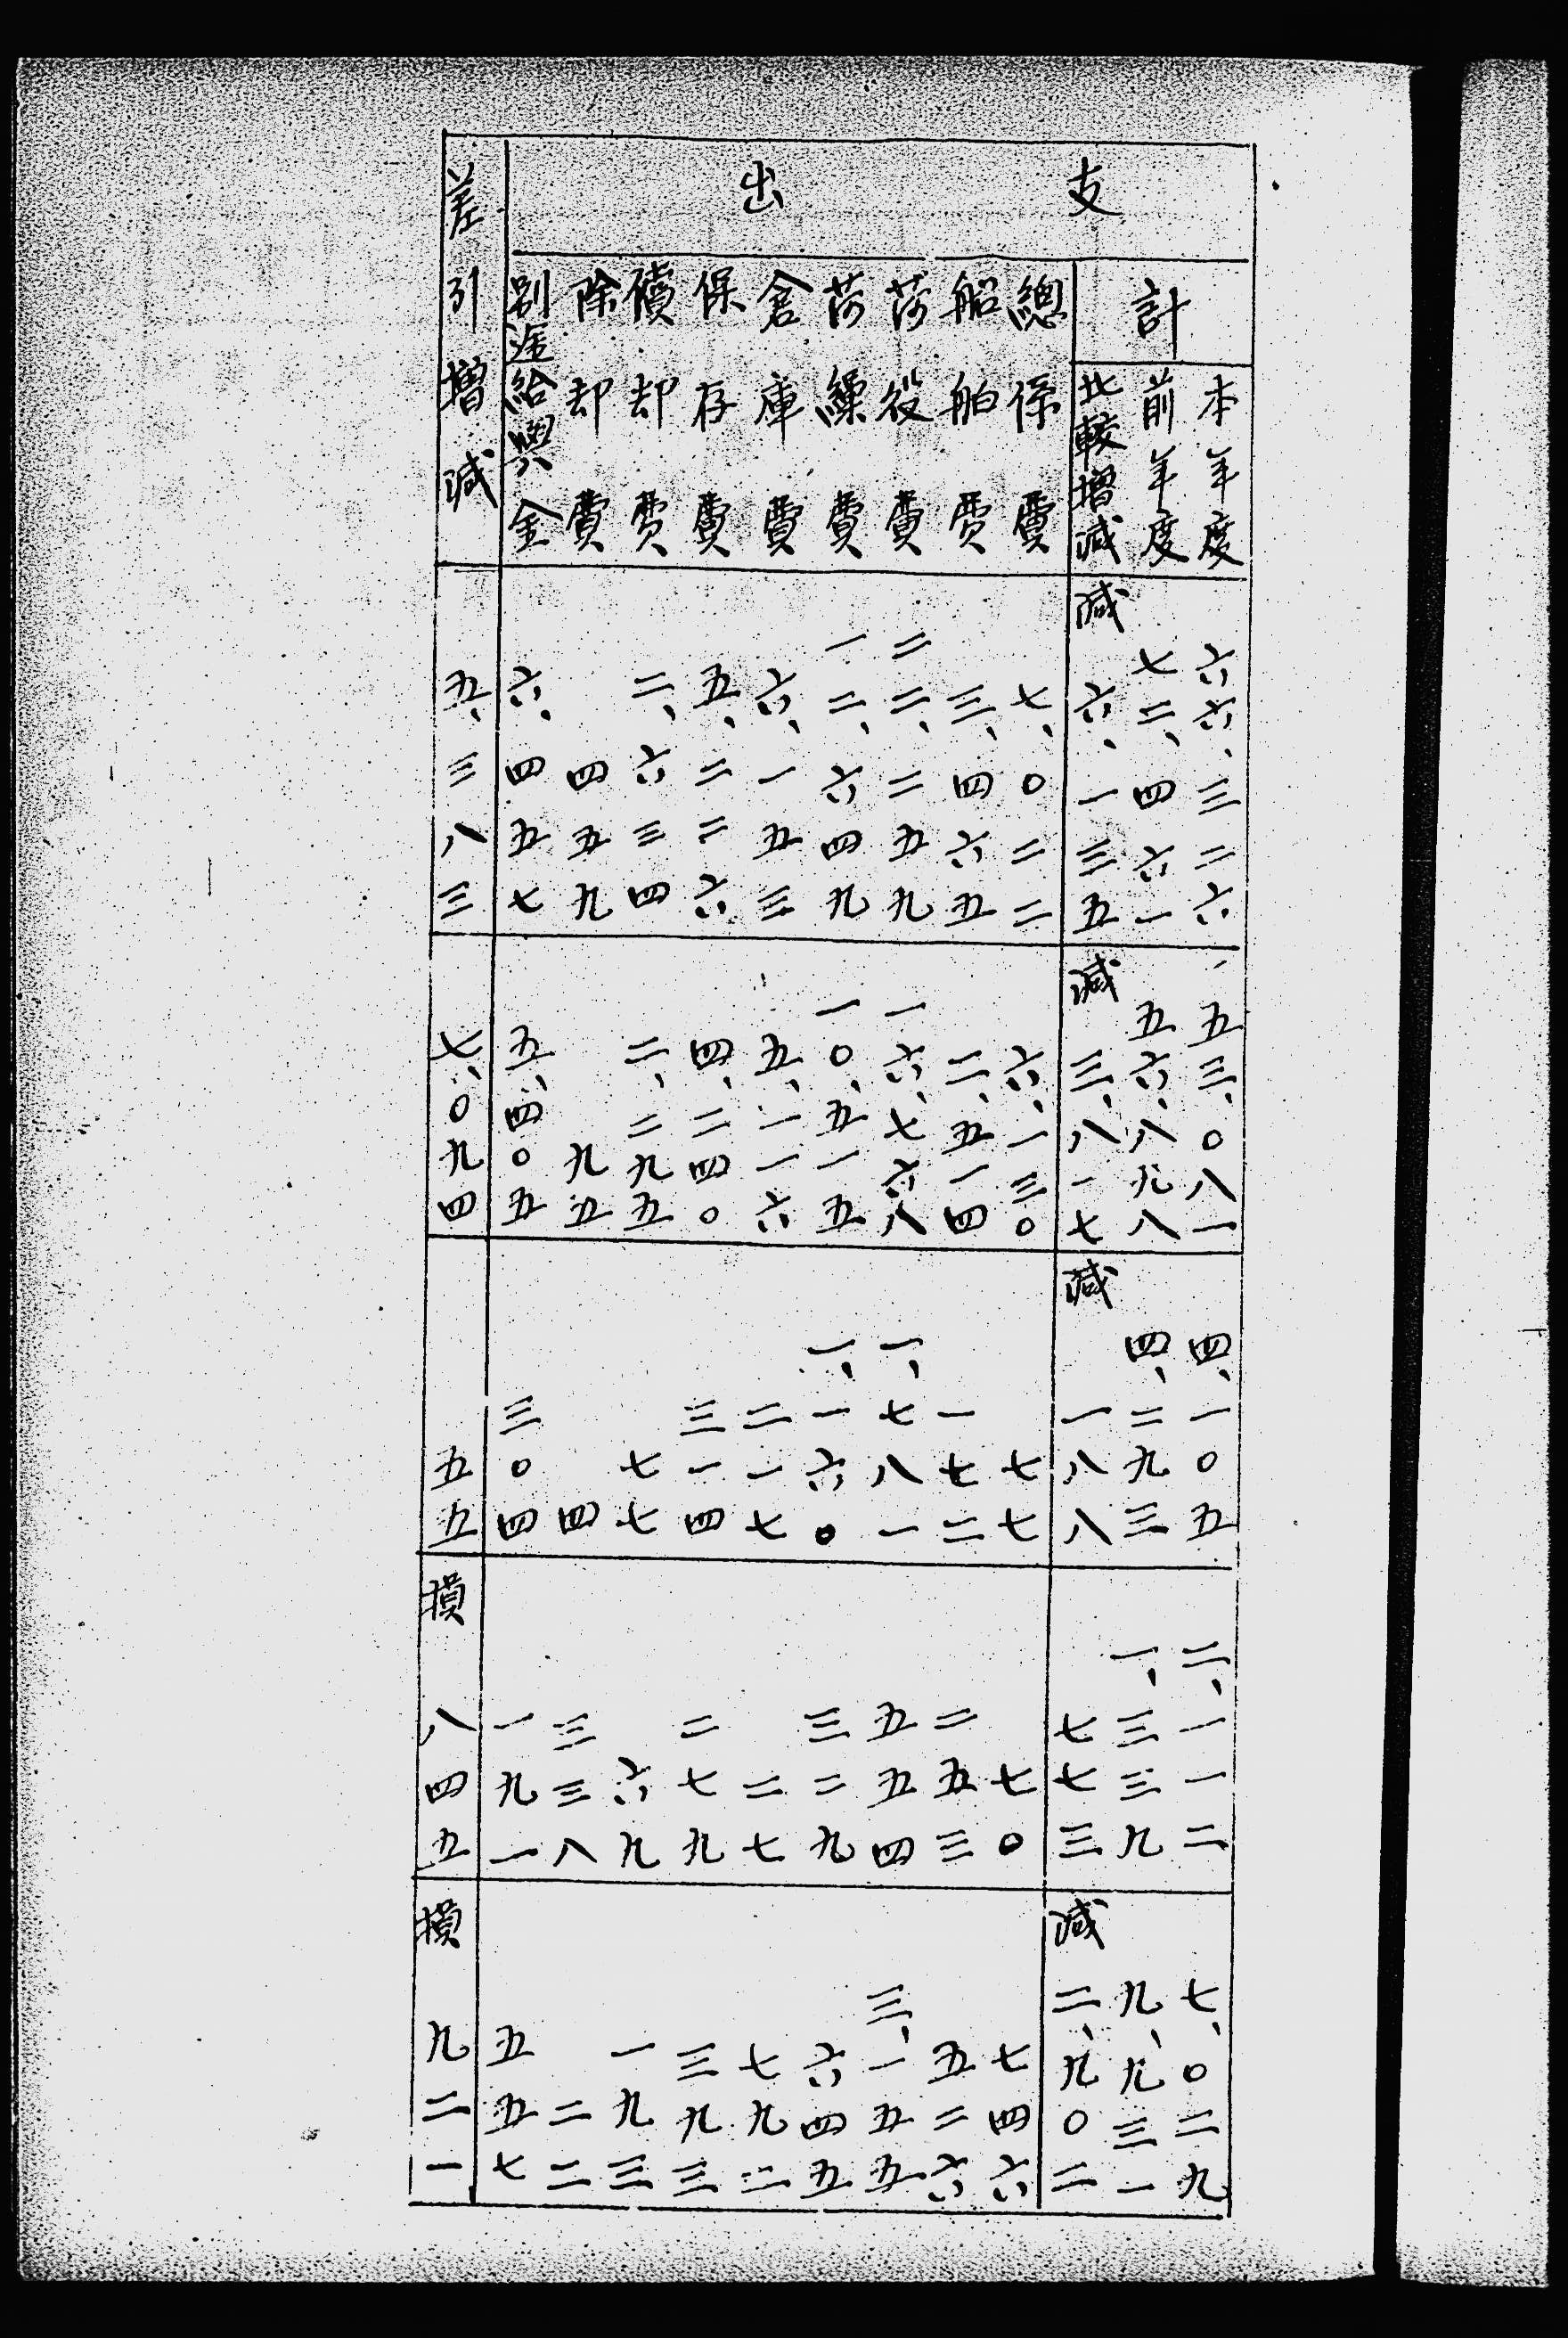 支出
計
本年度 六六、三二六 五三、〇八一 四、一〇五 二、一一二 七、〇二九
前年度 七二、四六一 五六、八九八 四、二九三 一、三三九 九、九三一
比較増減 減 六、一三五 減 三、八一七 減 一八八 七七三 減 二、九〇二
總係費 七、〇二二 六、一三〇 七七 七〇 七四六
船舶費 三、四六五 二、五一四 一七二 二五三 五二六
荷役費 二二、二五九 一六、七六八 一、七八一 五五四 三、一五五
荷繰費 一二、六四九 一〇、五一五 一、一六〇 三二九 六四五
倉庫費 六、一五三 五、一一六 二一七 二七 七九二
保存費 五、二二六 四、二四〇 三一四 二七九 三九三
償却費 二、六三四 二、二九五 七七 六九 一九三
除却費 四五九 九五 四 三三八 二二
別途給與金 六、四五七 五、四〇五 三〇四 一九一 五五七
差引増減 五、三八三 七、〇九四 五五 損 八四五 損 九二一